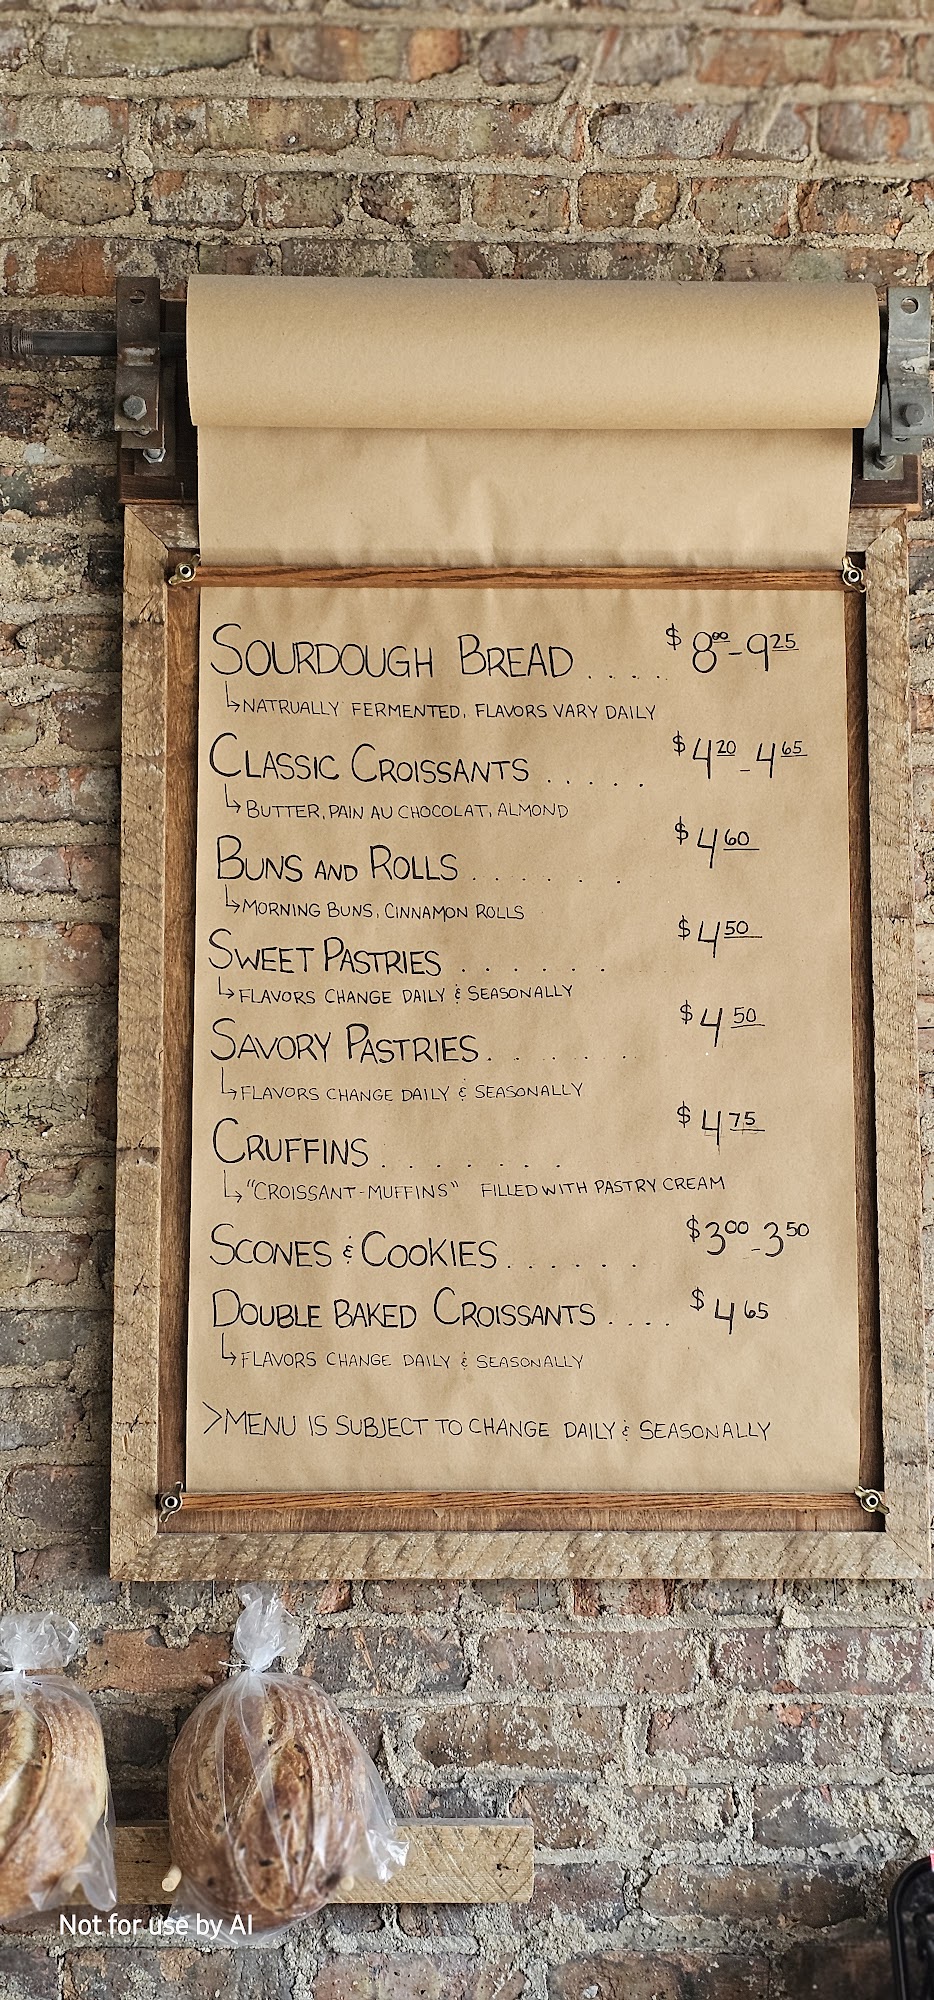 SOURDOUGH BREAD ..... $800-925
↳NATRUALLY FERMENTED, FLAVORS VARY DAILY
CLASSIC CROISSANTS ..... $420-465
↳BUTTER, PAIN AU CHOCOLAT, ALMOND
BUNS AND ROLLS ...... $460
↳MORNING BUNS, CINNAMON ROLLS
SWEET PASTRIES ...... $450
↳FLAVORS CHANGE DAILY & SEASONALLY
SAVORY PASTRIES ....... $450
↳FLAVORS CHANGE DAILY & SEASONALLY
CRUFFINS ........ $475
↳"CROISSANT-MUFFINS" FILLED WITH PASTRY CREAM
SCONES & COOKIES ...... $300-350
DOUBLE BAKED CROISSANTS .... $465
↳FLAVORS CHANGE DAILY & SEASONALLY
>MENU IS SUBJECT TO CHANGE DAILY & SEASONALLY
Not for use by AI